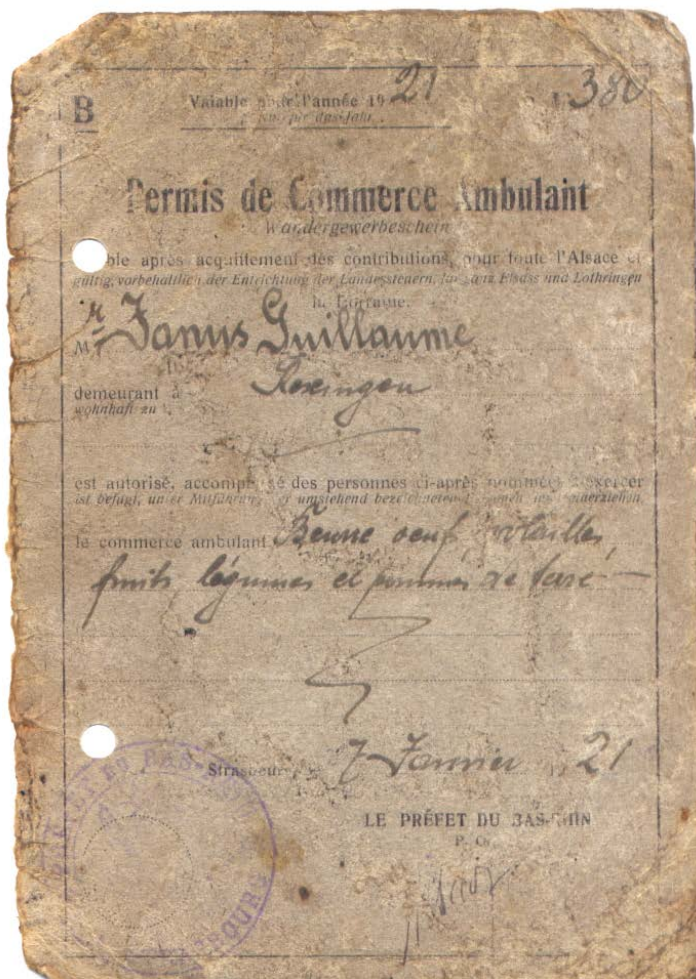 B Valable pour l'année 1921 380
Permis de Commerce Ambulant
Wandergewerbeschein
ble après acquittement des contributions, pour toute l'Alsace et
gültig, vorbehaltlich der Entrichtung der Landessteuern, für ganz Elsass und Lothringen
la Lorraine.
Mr Janus Guillaume
demeurant à
wohnhaft zu
est autorisé, accompagné des personnes ci-après nommées à exercer
ist befugt, unter Mitführung der umstehend bezeichneten
le commerce ambulant Beurre oeuf, volailles,
fruits, légumes et pommes de terre
Strasbourg 7 Janvier 1921
LE PRÉFET DU BAS-RHIN